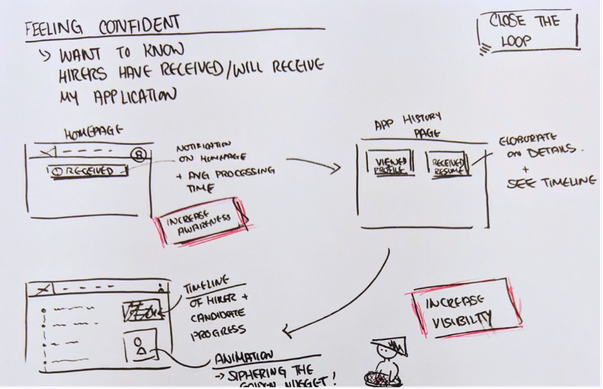 FEELING CONFIDENT
CLOSE THE
LOOP
WANT TO KNOW
HIRERS HAVE RECEIVED/WILL RECEIVE
MY APPLICATION
HOMEPAGE
RECEIVED
NOTIFICATION
ON HOMEPAGE
+ AVG PROCESSING
TIME
INCREASE
AWARENESS
APP HISTORY
PAGE
VIEWED
PROFILE
RECEIVED
RESUME
ELABORATE
ON DETAILS.
+
SEE TIMELINE
TIMELINE
OF HIRER +
CANDIDATE
PROGRESS
ANIMATION
→ SIPHERING THE
GOLDEN NUGGET!
INCREASE
VISIBILITY